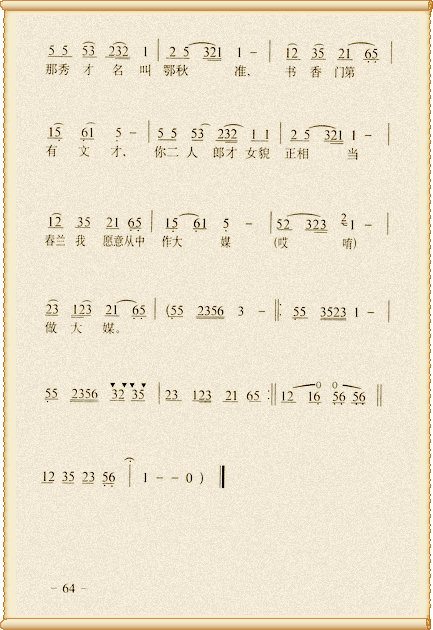 5 5 53 232 1 | 2 5 321 1 - | 12 35 21 65 |
那秀 才 名 叫 鄂秋 准、 书 香 门第
15 61 5 - | 5 5 53 232 1 1 | 2 5 321 1 - |
有 文 才、 你二 人 郎才 女貌 正相 当
12 35 21 65 | 15 61 5 - | 52 323 2 1 - |
春兰 我 愿意从中 作大 媒 (哎 唷)
23 123 21 65 | (55 2356 3 - ‖: 55 3523 1 - |
做 大 媒。
55 2356 32 35 | 23 123 21 65 :‖ 12 16 56 56 ‖
12 35 23 56 | 1 - - 0 ) ‖
- 64 -